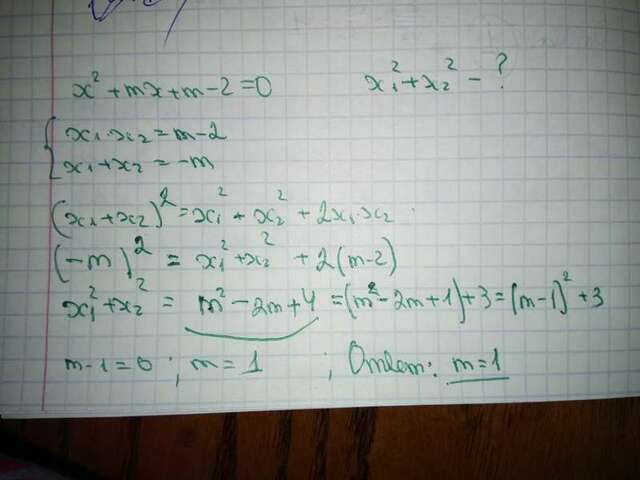 x² + mx + m - 2 = 0     x₁² + x₂² - ?
{ x₁ · x₂ = m - 2
{ x₁ + x₂ = - m
(x₁ + x₂)² = x₁² + x₂² + 2x₁x₂
(- m)² = x₁² + x₂² + 2(m-2)
x₁² + x₂² = m² - 2m + 4 = (m² - 2m + 1) + 3 = (m-1)² + 3
m-1 = 0 ; m = 1 ; Ответ: m = 1